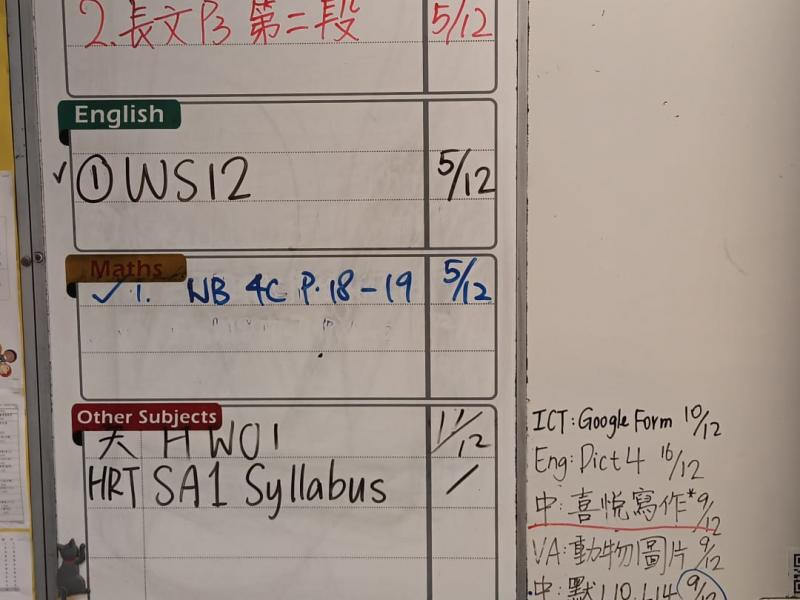 2. 長文 P3 第二段 5/12
English
✓ ① WS12 5/12
Maths
✓ 1. WB 4C P.18-19 5/12
Other Subjects
HW01 11/12
HRT SA1 Syllabus /
ICT: Google Form 10/12
Eng: Dict 4 16/12
中: 喜悅寫作* 9/12
VA: 動物圖片 9/12
中: 默 9/12